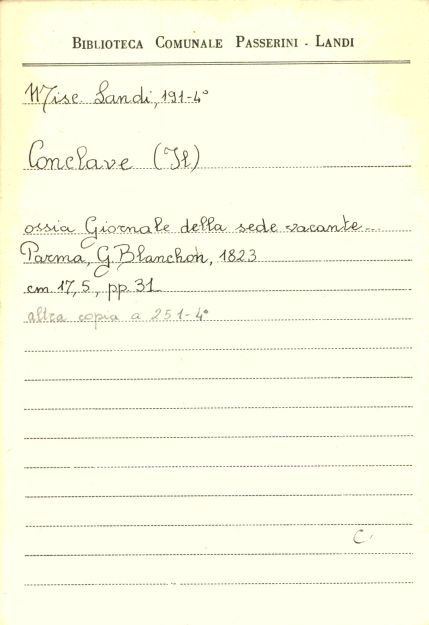 BIBLIOTECA COMUNALE PASSERINI - LANDI
Misc. Landi, 191-4°
Conclave (Il)
ossia Giornale della sede vacante...
Parma, G. Blanchon, 1823
cm. 17,5, pp. 31
altra copia a 251-4°
C.